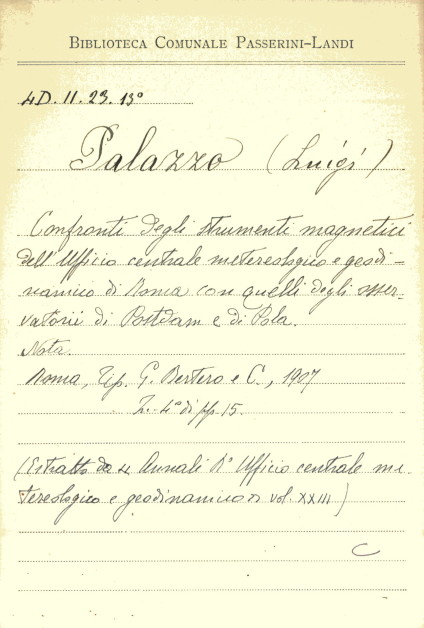 BIBLIOTECA COMUNALE PASSERINI-LANDI
4D. 11. 23. 13°
Palazzo (Luigi)
Confronti degli strumenti magnetici
dell'Ufficio centrale metereologico e geodi-
namico di Roma con quelli degli osser-
vatorii di Postdam e di Pola.
Nota.
Roma, Tip. G. Bertero e C., 1907
in-4° di pp 15.
(Estratto da "Annali R° Ufficio centrale me-
tereologico e geodinamico" vol. XXIII)
C